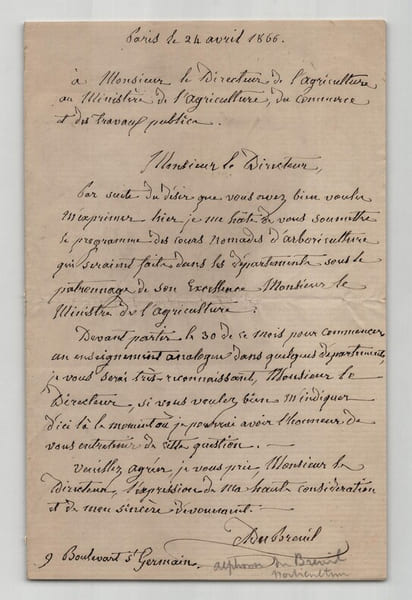 Paris le 24 avril 1866.
à Monsieur le Directeur de l'agriculture
au Ministère de l'agriculture, du commerce
et des travaux publics.
Monsieur le Directeur,
Par suite du désir que vous avez bien voulu
m'exprimer hier je me hâte de vous soumettre
le programme des cours nomades d'arboriculture
qui seraient faits dans les départements sous le
patronnage de son Excellence Monsieur le
Ministre de l'agriculture.
Devant partir le 30 de ce mois pour commencer
un enseignement analogue dans quelques départements,
je vous serai très-reconnaissant, Monsieur le
Directeur, si vous voulez bien m'indiquer
d'ici là le moment où je pourrai avoir l'honneur de
vous entretenir de cette question. —
Veuillez agréer, je vous prie, Monsieur le
Directeur, l'expression de ma haute considération
et de mon sincère dévouement. —
A DuBreuil
9 Boulevart St Germain.
alphonse Du Breuil
horticulteur